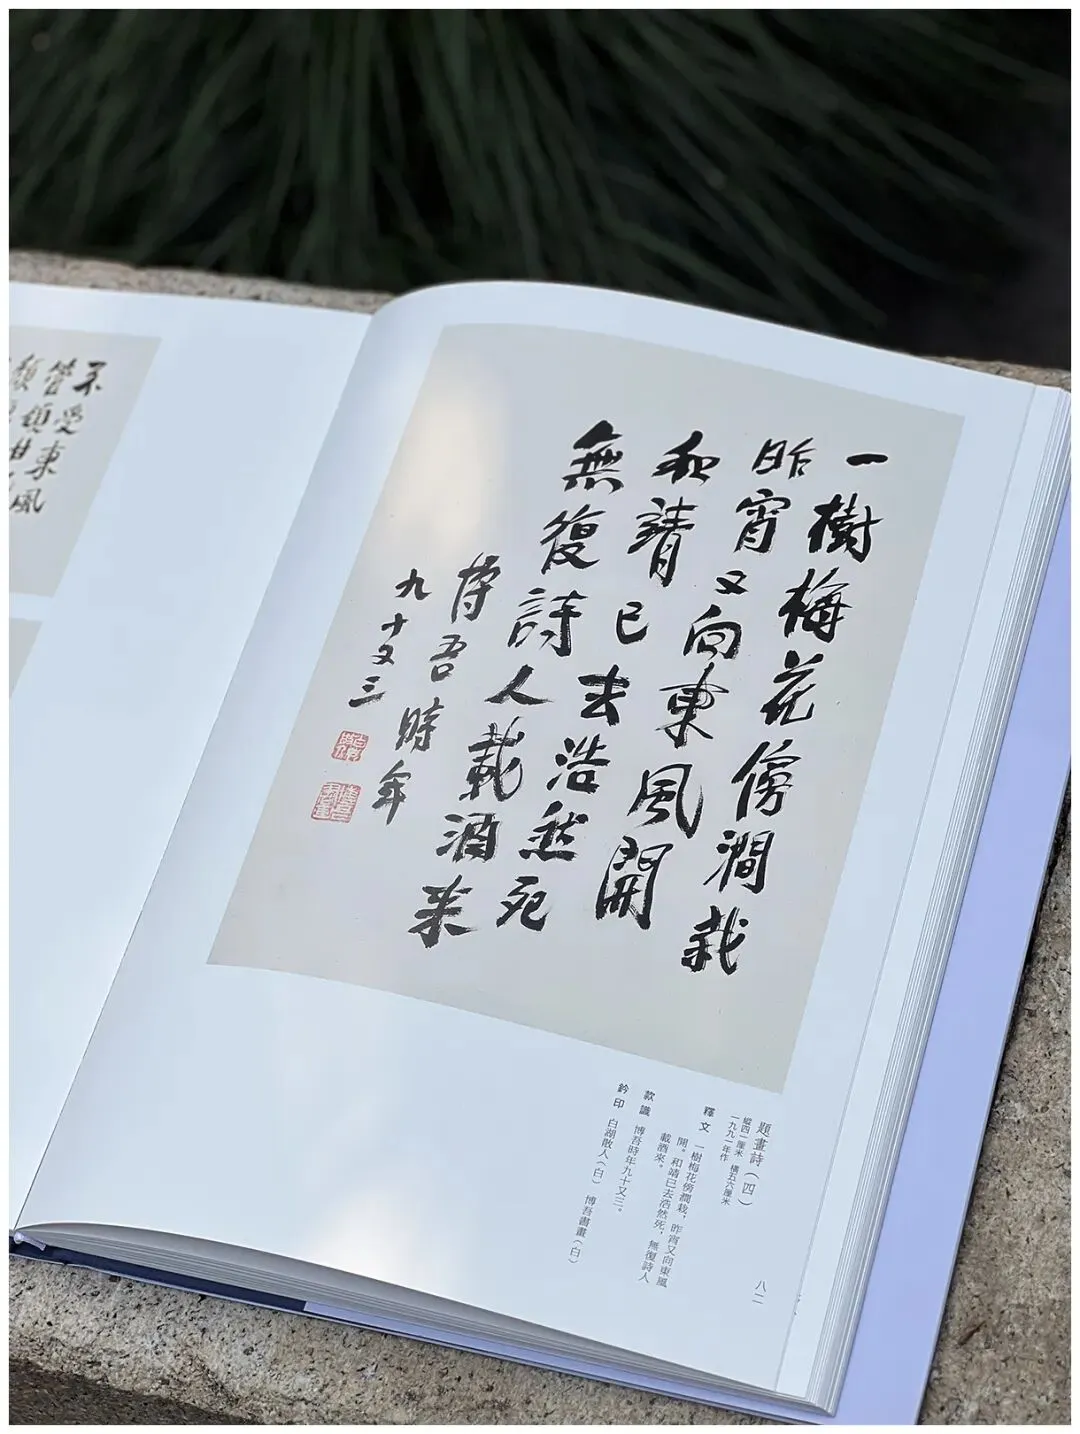 一樹梅花傍澗栽
昨宵又向東風開
和靖已去浩然死
無復詩人載酒來
博吾時年
九十又三
題畫詩（四）
縱四一厘米 橫五六厘米
一九九一年作
釋文 一樹梅花傍澗栽，昨宵又向東風
開。和靖已去浩然死，無復詩人
載酒來。
款識 博吾時年九十又三。
鈐印 白湖散人（白） 博吾書畫（白）
八二
不受東風
管